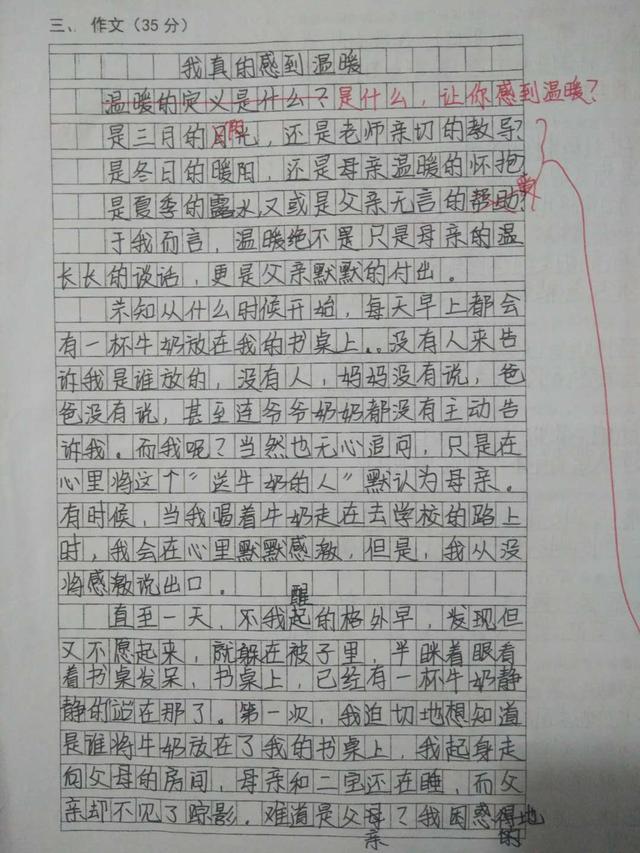 三、作文（35分）
我真的感到温暖
温暖的定义是什么？是什么，让你感到温暖？
是三月的阳光，还是老师亲切的教导？
是冬日的暖阳，还是母亲温暖的怀抱？
是夏季的露水，又或是父亲无言的帮助？
于我而言，温暖绝不是只是母亲的温
长长的谈话，更是父亲默默的付出。
未知从什么时候开始，每天早上都会
有一杯牛奶放在我的书桌上..没有人来告
诉我是谁放的，没有人，妈妈没有说，爸
爸没有说，甚至连爷爷奶奶都没有主动告
诉我。而我呢？当然也无心追问，只是在
心里将这个"送牛奶的人"默认为母亲。
有时候，当我喝着牛奶走在去学校的路上
时，我会在心里默默感激，但是，我从没
将感激说出口。
直至一天，不我醒的格外早，发现但
又不愿起来，就躲在被子里，半眯着眼看
着书桌发呆，书桌上，已经有一杯牛奶静
静的站在那了。第一次，我迫切地想知道
是谁将牛奶放在了我的书桌上，我起身走
向父母的房间，母亲和二宝还在睡，而父
亲却不见了踪影。难道是父亲？我困惑的